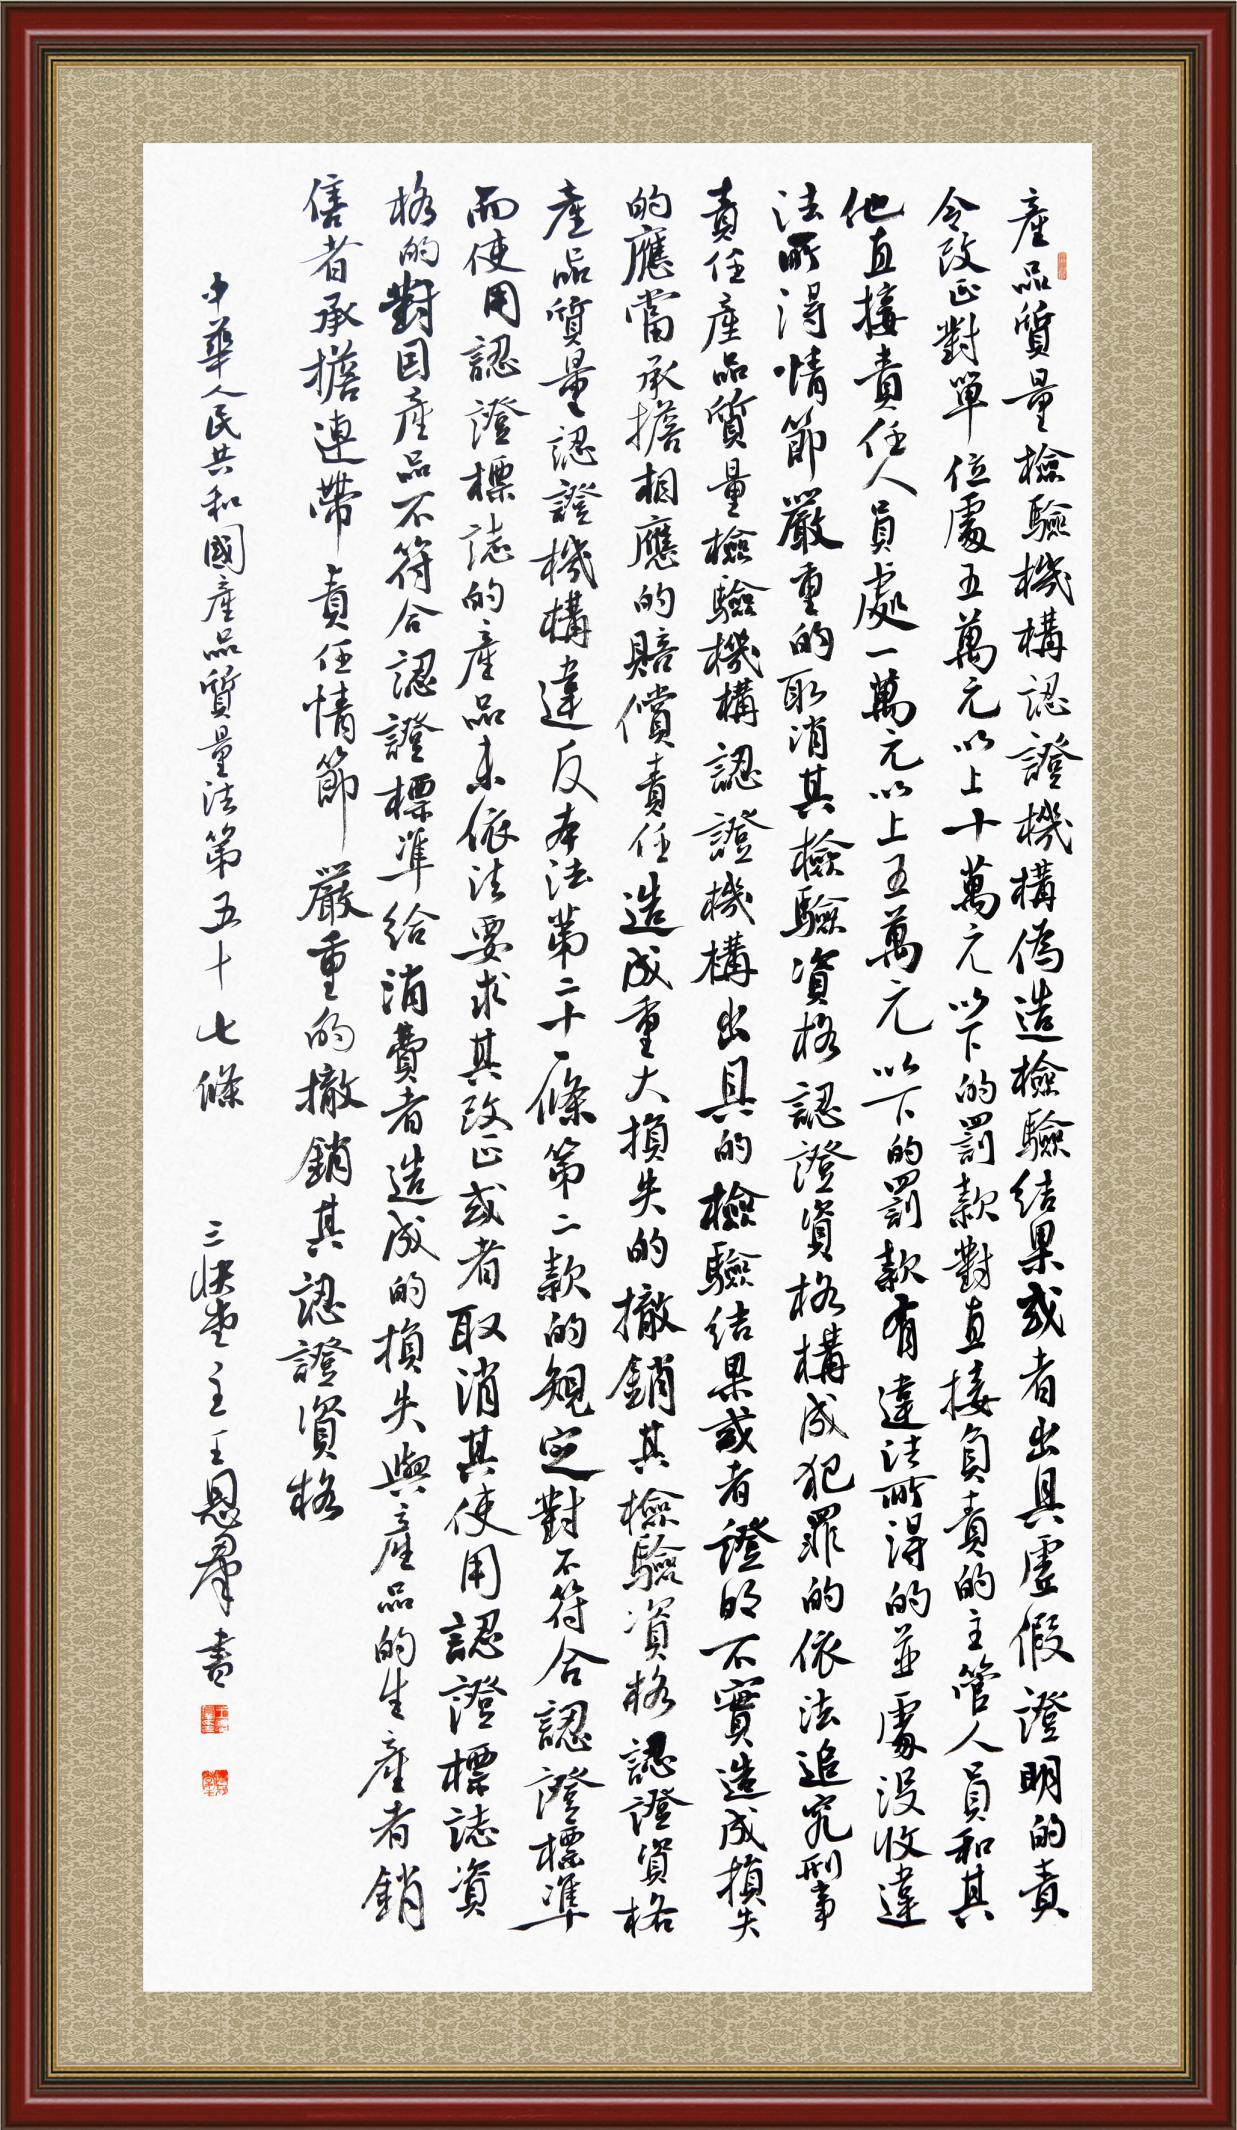 產品質量檢驗機構認證機構偽造檢驗結果或者出具虛假證明的責
令改正對單位處五萬元以上十萬元以下的罰款對直接負責的主管人員和其
他直接責任人員處一萬元以上五萬元以下的罰款有違法所得的並處沒收違
法所得情節嚴重的取消其檢驗資格認證資格構成犯罪的依法追究刑事
責任產品質量檢驗機構認證機構出具的檢驗結果或者證明不實造成損失
的應當承擔相應的賠償責任造成重大損失的撤銷其檢驗資格認證資格
產品質量認證機構違反本法第二十一條第二款的規定對不符合認證標準
而使用認證標誌的產品未依法要求其改正或者取消其使用認證標誌資
格的對因產品不符合認證標準給消費者造成的損失與產品的生產者銷
售者承擔連帶責任情節嚴重的撤銷其認證資格
中華人民共和國產品質量法第五十七條 三快堂主王恩群書